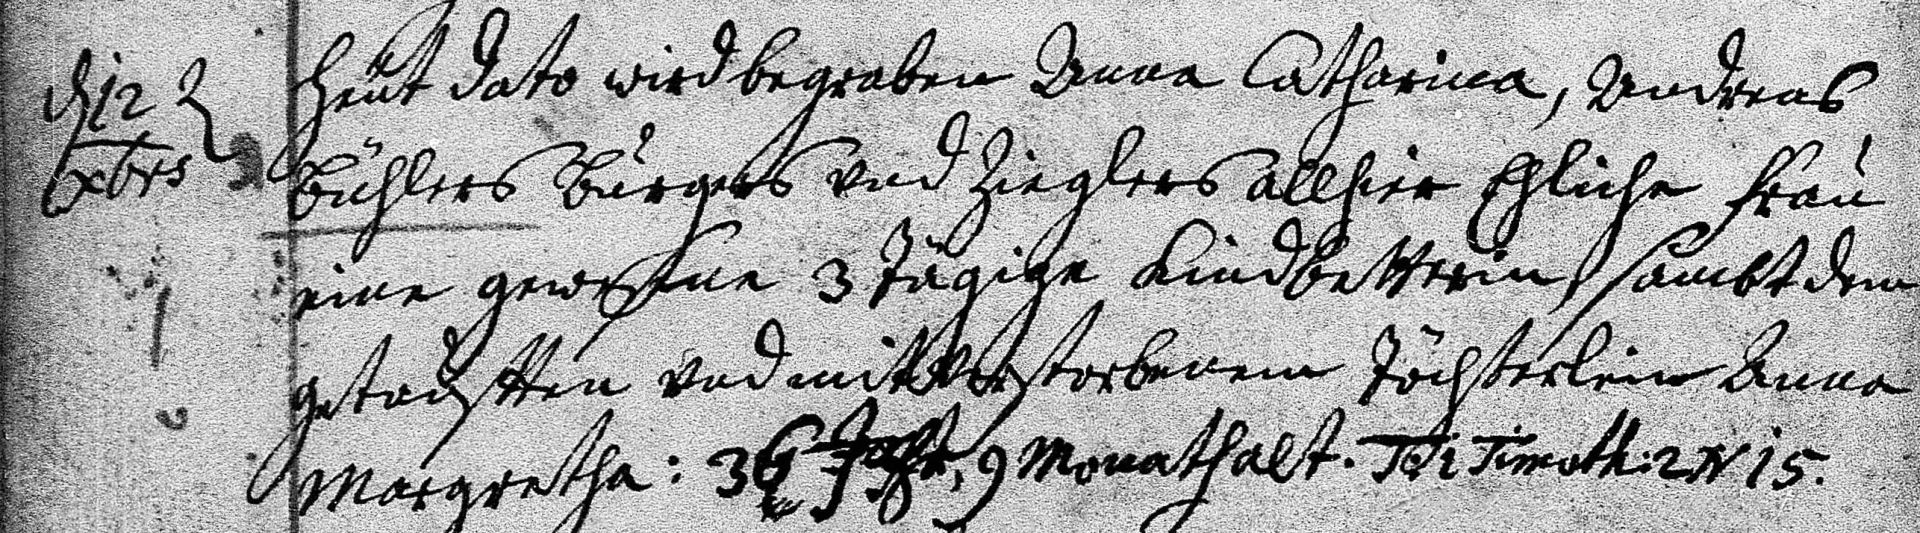 d 12
xbris
Heüt dato wird begraben Anna Catharina, Andreas
Bühlers Bürgers und Zieglers allhier Ehliche Fraü
eine gewesene 3 Tägige Kindbetterin sambt dem
getaufften und mitverstorbenem Töchterlein Anna
Margretha: Jahr, 9 Monath alt. Timoth: 2. V 15.